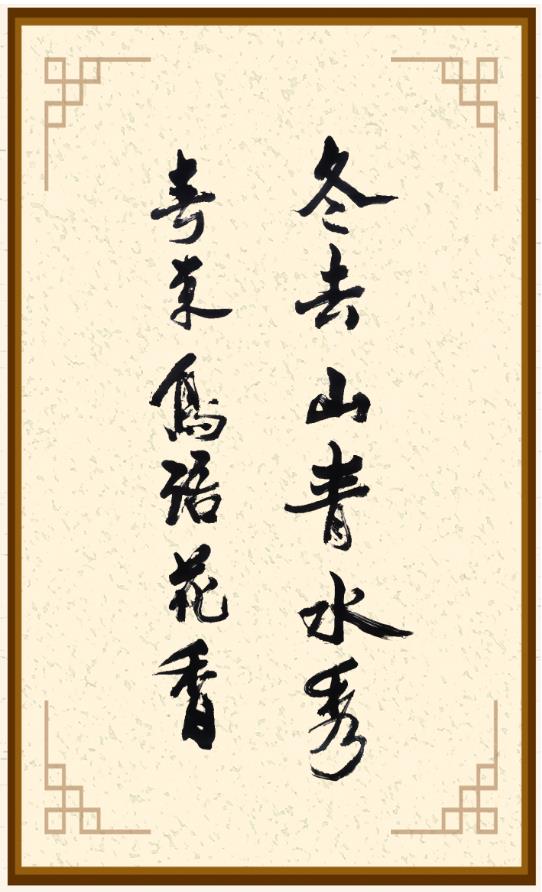 冬去山青水秀
春来鳥語花香